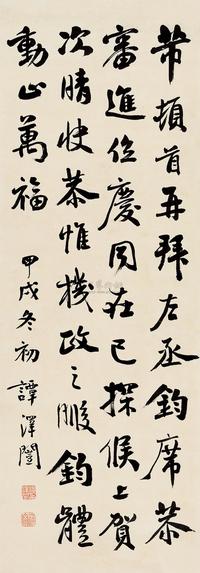 芾頓首再拜左丞鈞席芾
審進位慶同在已探候上賀
次晴快恭惟機政之暇鈞體
動止萬福
甲戌冬初 譚澤闓